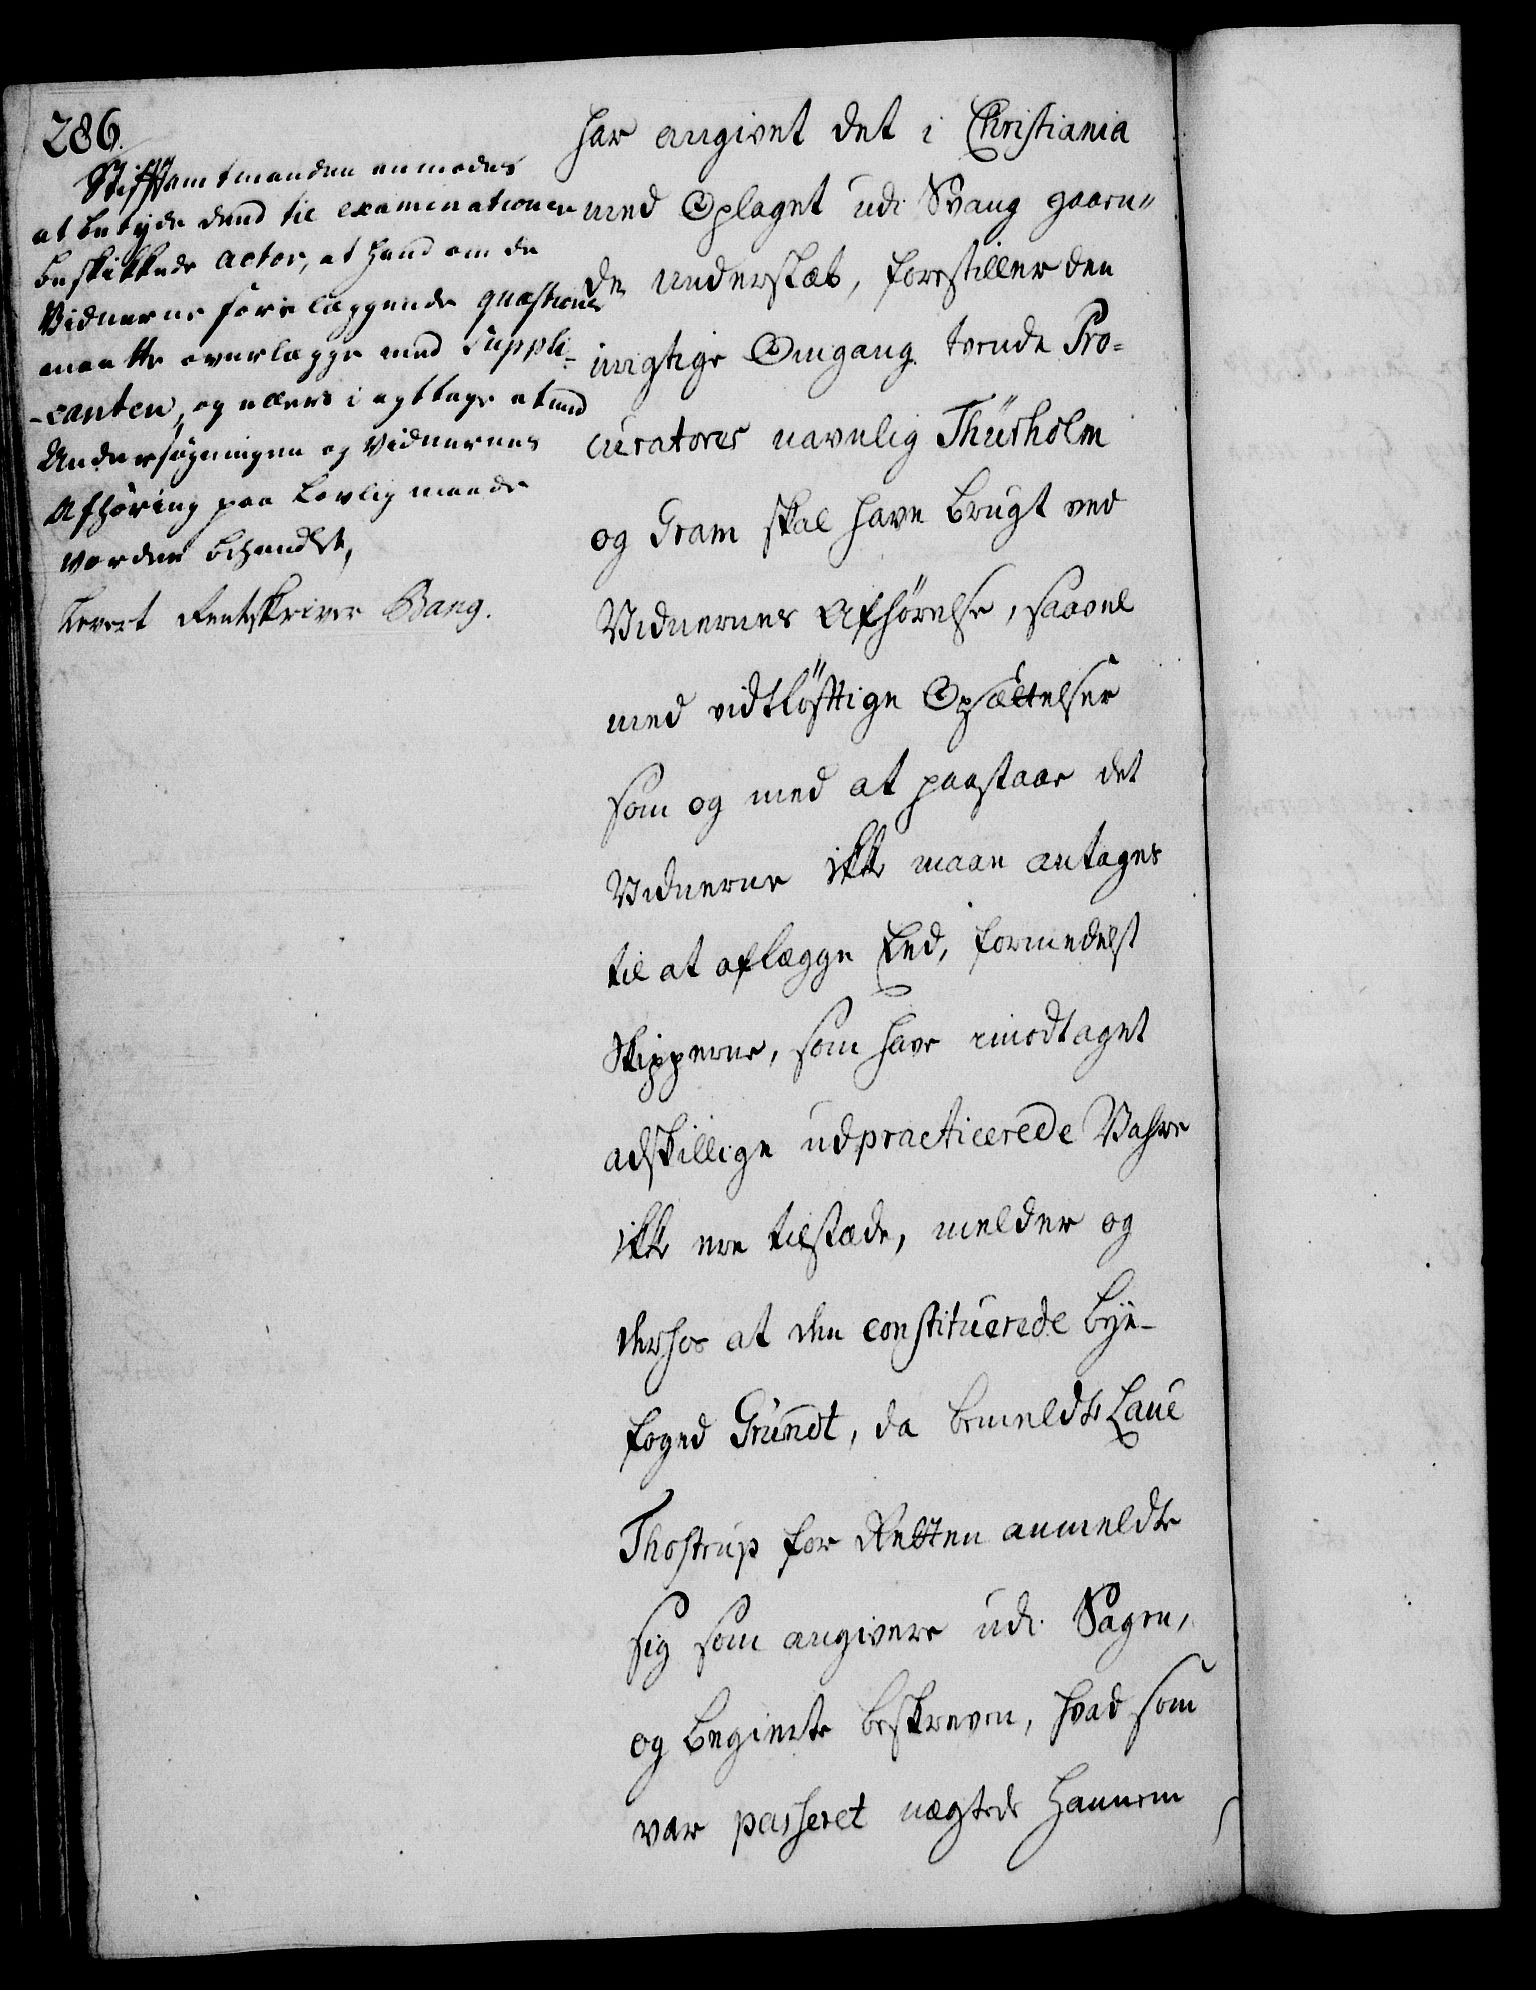 286.
Stifftamtmanden anmodes
at betyde dend til examinationen
beskikkede actor, at hand om de
Vidnerne forelæggende quæstioner
maatte overlægge med Suppli-
-canten, og ellers i agttage at med
Undersøgningen og Vidnernes
Afhøring paa Lovlig maade
vorder behandlet,
Levert Rentskriver Bang.
har angivet det i Christiania
med Oplaget udi Svang gaaen"
de underskæb, forestiller den
urigtige Omgang tvende Pro-
curatores navnlig Thürholm
og Gram skal have brugt ved
Vidnernes Afhørelse, saavel
med vidtløfftige Opsættelser
som og med at paastaae det
Vidnerne ikke maae antages
til at aflægge Eed, formedelst
Skipperne, som have imodtaget
adskillige udpracticerede Vahre
ikke ere tilstæde, melder og
derhos at den constituerede bye-
foged Grundt, da bemeldte Laue
Thostrup for Retten anmeldte
sig som angivere udi Sagen,
og begierte beskreven, hvad som
var passeret nægtede Hannem